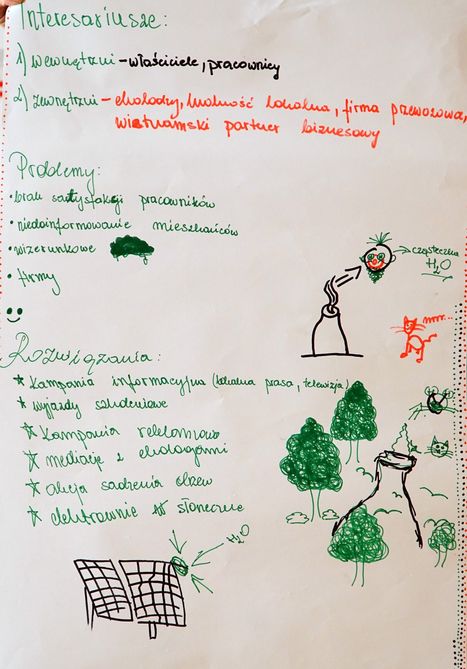 Interesariusze:
1) wewnętrzni - właściciele, pracownicy
2) zewnętrzni - ekolodzy, ludność lokalna, firma przewozowa,
wietnamski partner biznesowy
Problemy:
• brak satysfakcji pracowników
• niedoinformowanie mieszkańców
• wizerunkowe
• firmy
cząsteczka
H2O
mrrr...
Rozwiązania:
* kampania informacyjna (lokalna prasa, telewizja)
* wyjazdy szkoleniowe
* kampania reklamowa
* mediacje z ekologami
* akcja sadzenia drzew
* elektrownie słoneczne
H2O